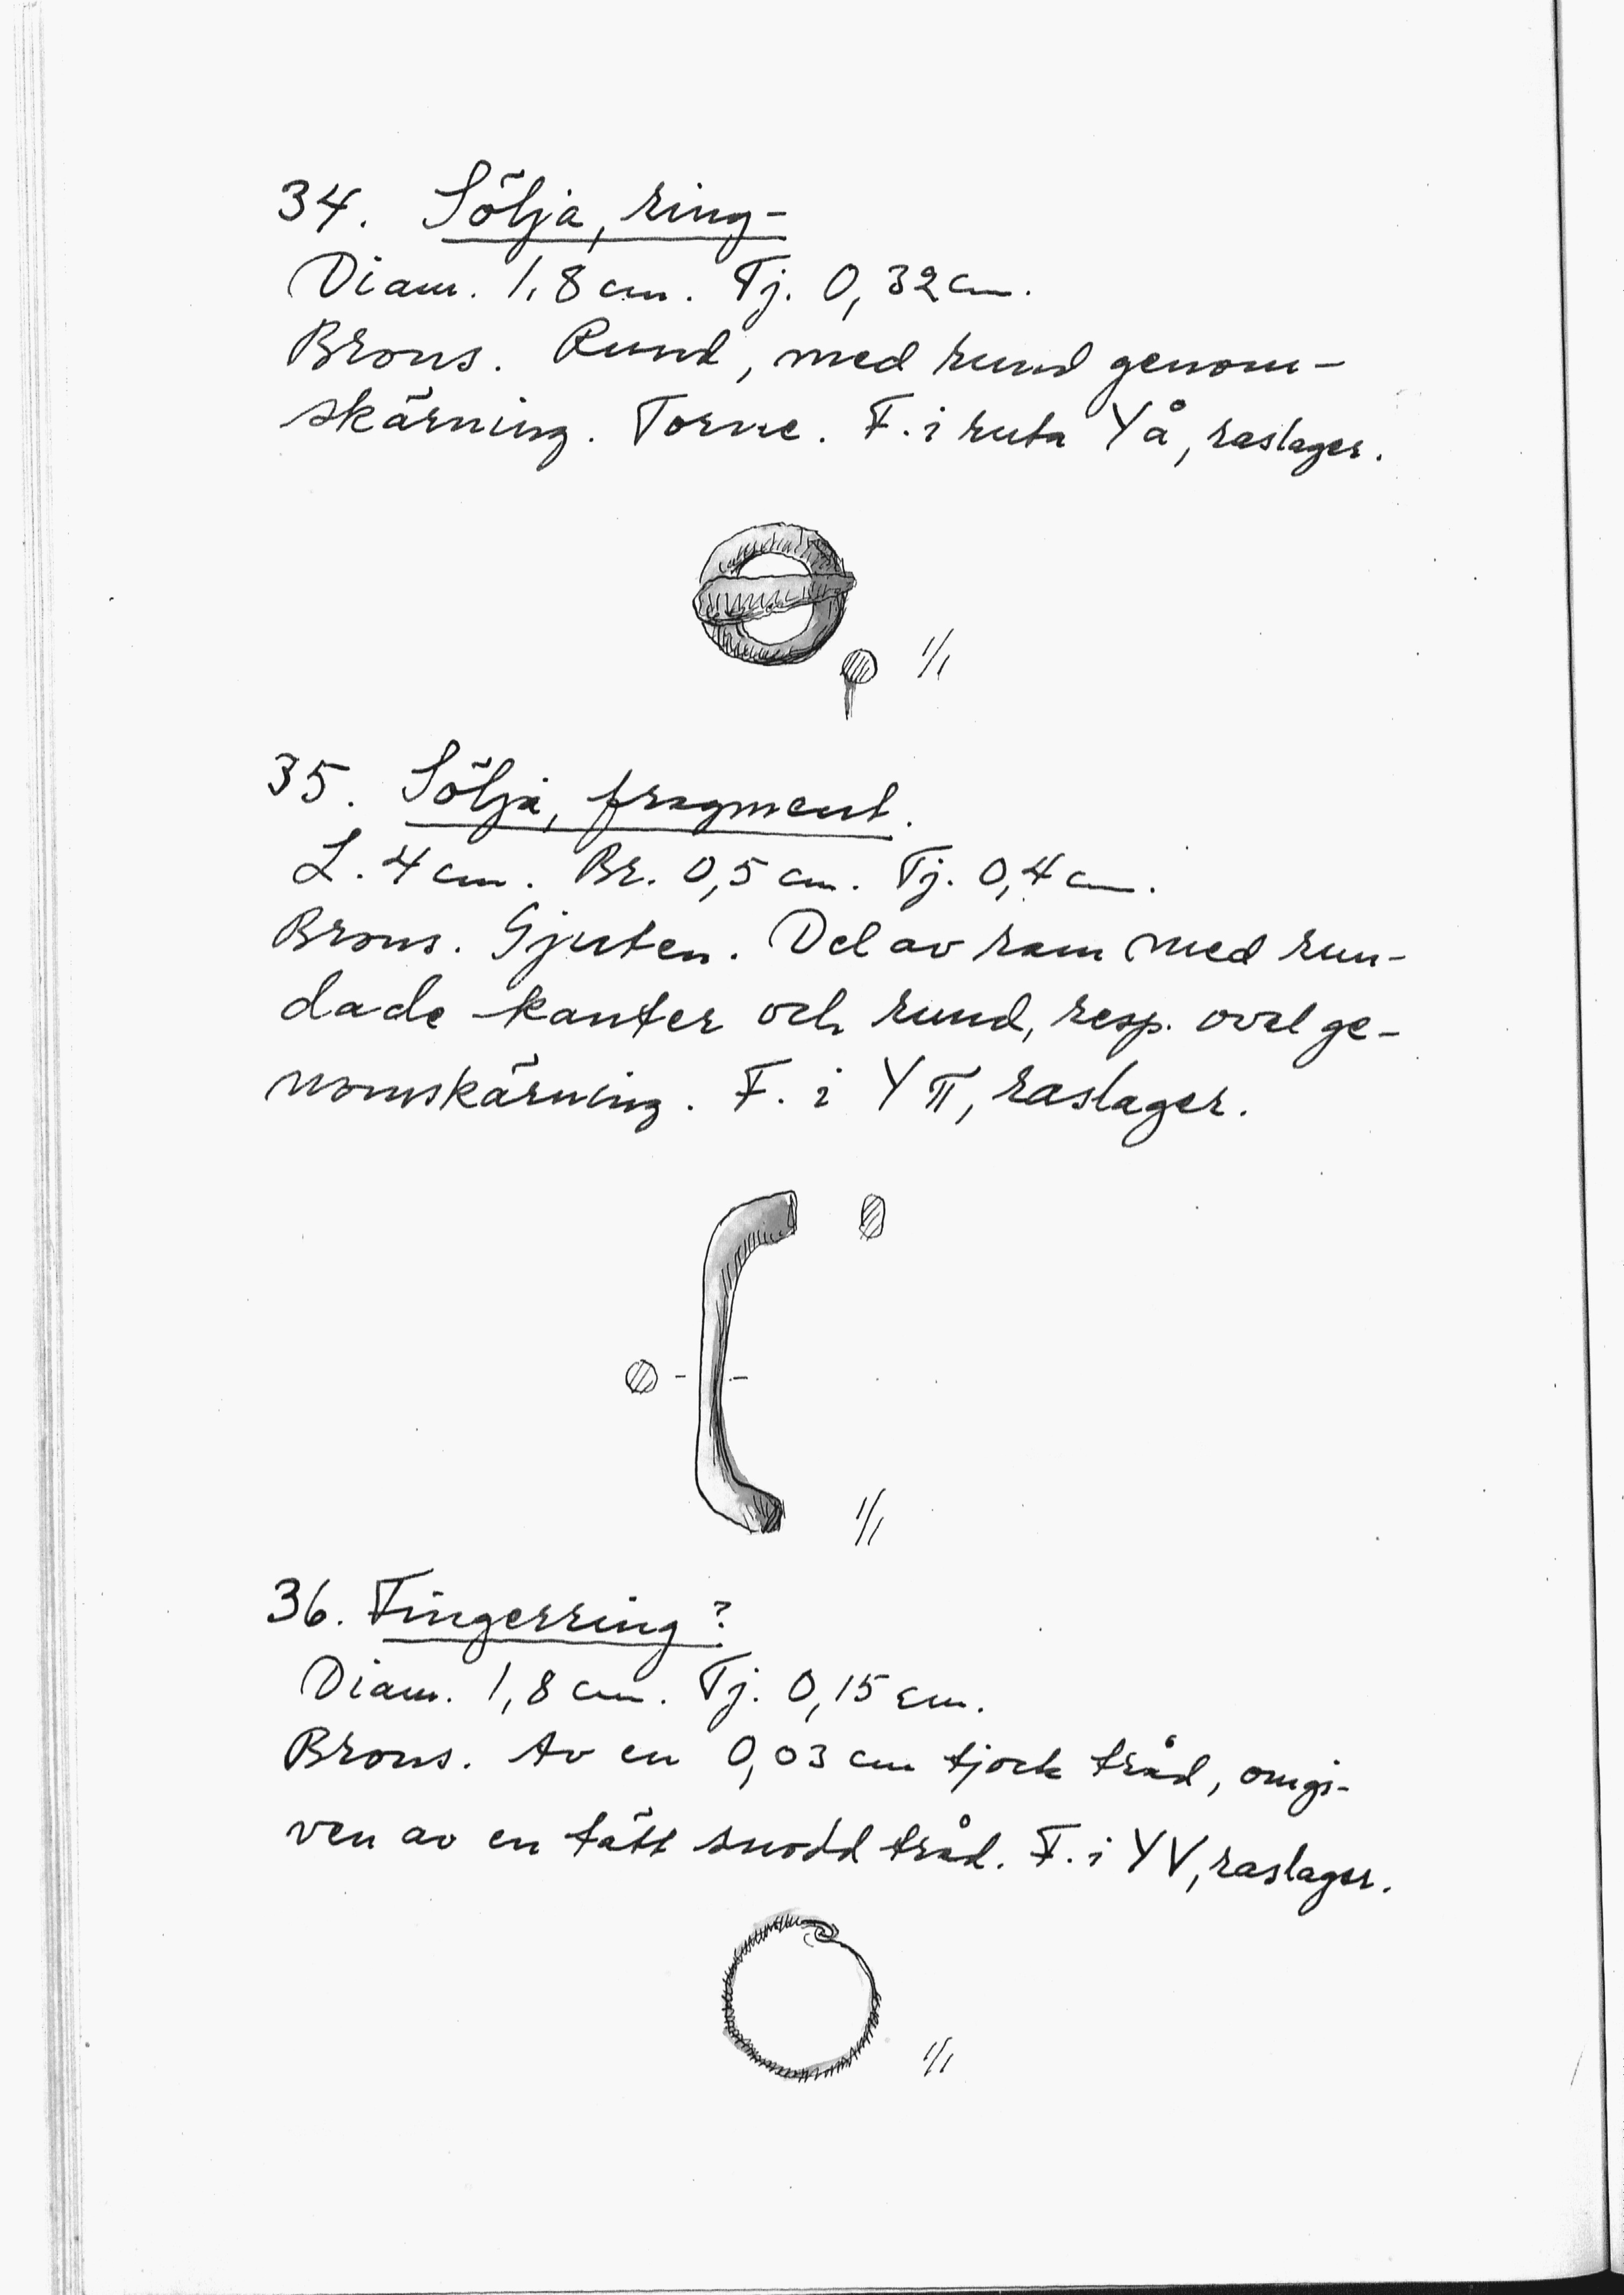 34. Sölja, ring-
Diam. 1,8 cm. Tj. 0,32 cm.
Brons. Rund, med rund genom-
skärning. Torne. F. i ruta Y å, raslager.
1/1
35. Sölja, fragment.
L. 4 cm. Br. 0,5 cm. Tj. 0,4 cm.
Brons. Gjuten. Del av ram med run-
dade kanter och rund, resp. oval ge-
nomskärning. F. i Y π, raslager.
1/1
36. Fingerring?
Diam. 1,8 cm. Tj. 0,15 cm.
Brons. Av en 0,03 cm tjock tråd, omgi-
ven av en tätt snodd tråd. F. i Y V, raslager.
1/1